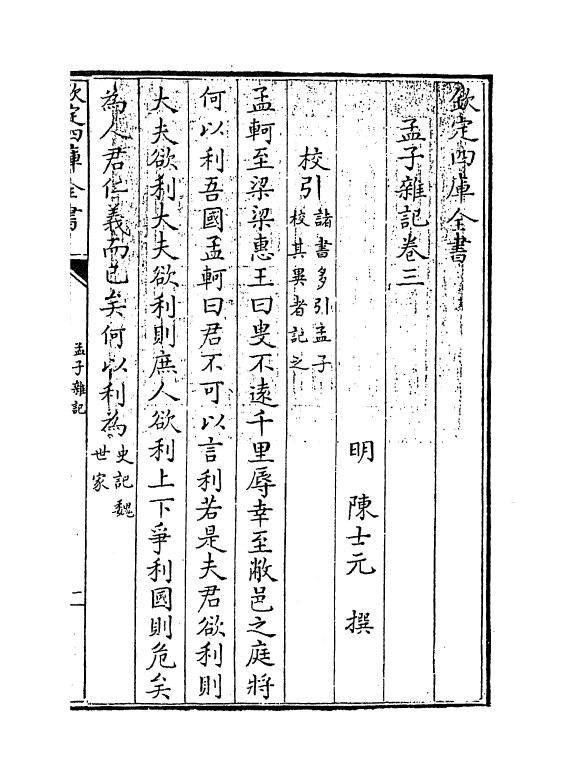 欽定四庫全書
孟子雜記卷三
明　陳士元　撰
校引諸書多引孟子
校其異者記之
孟軻至梁梁惠王曰叟不遠千里辱幸至敝邑之庭將
何以利吾國孟軻曰君不可以言利若是夫君欲利則
大夫欲利大夫欲利則庶人欲利上下爭利國則危矣
為人君仁義而已矣何以利為史記魏
世家
欽定四庫全書
孟子雜記